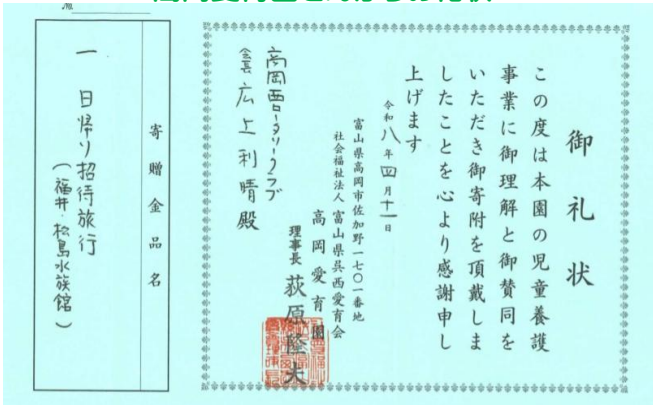 御礼状
この度は本園の児童養護
事業に御理解と御賛同を
いただき御寄附を頂戴しま
したことを心より感謝申し
上げます
令和八年四月十一日
富山県高岡市佐加野一七〇一番地
社会福祉法人 富山県呉西愛育会
高岡愛育園
理事長 荻原隆夫
高岡西ロータリークラブ
会長 広上利晴殿
寄贈金品名
一 日帰り招待旅行
(福井・松島水族館)